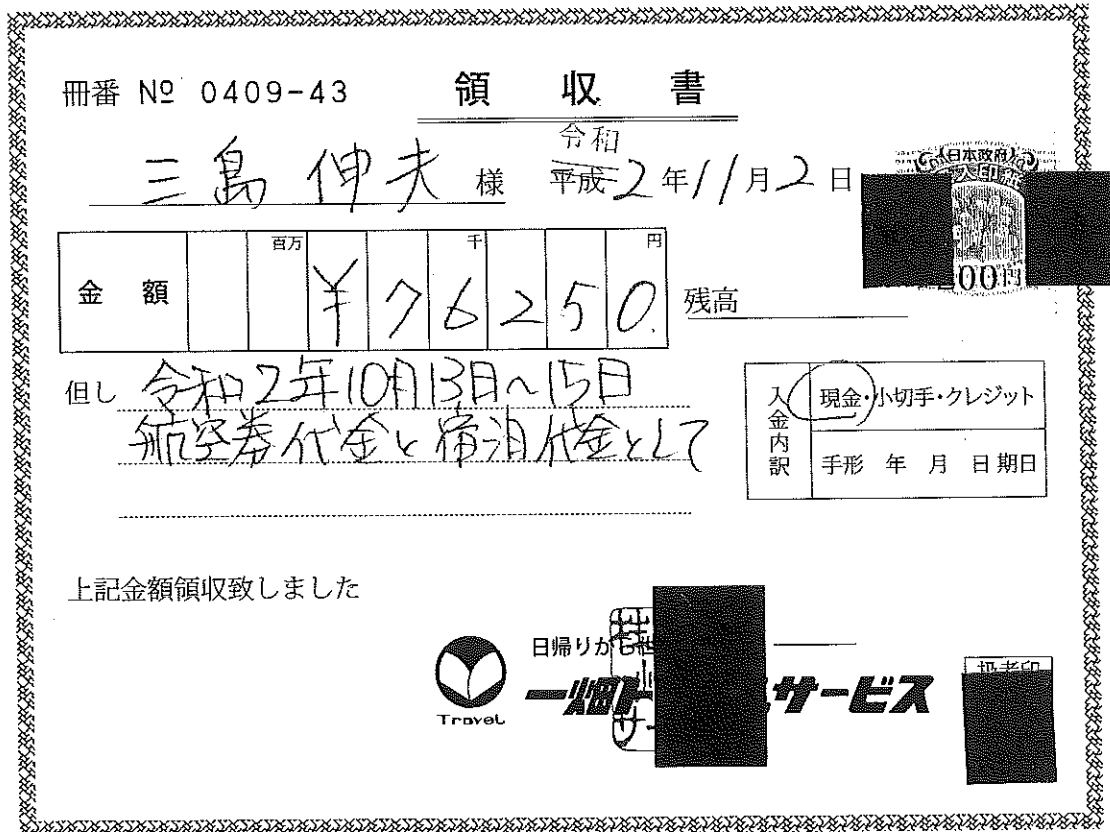 冊番 № 0409-43
領収書
三島 伸夫 様
令和
平成 2年11月2日
日本政府
入印紙
00円
金額 百万 千 円
¥76250.
残高
但し 令和2年10月13日~15日
航空券代金と宿泊代金として
入金内訳
現金・小切手・クレジット
手形 年 月 日期日
上記金額領収致しました
日帰りから
Travel
一畑ト サービス
扱者印